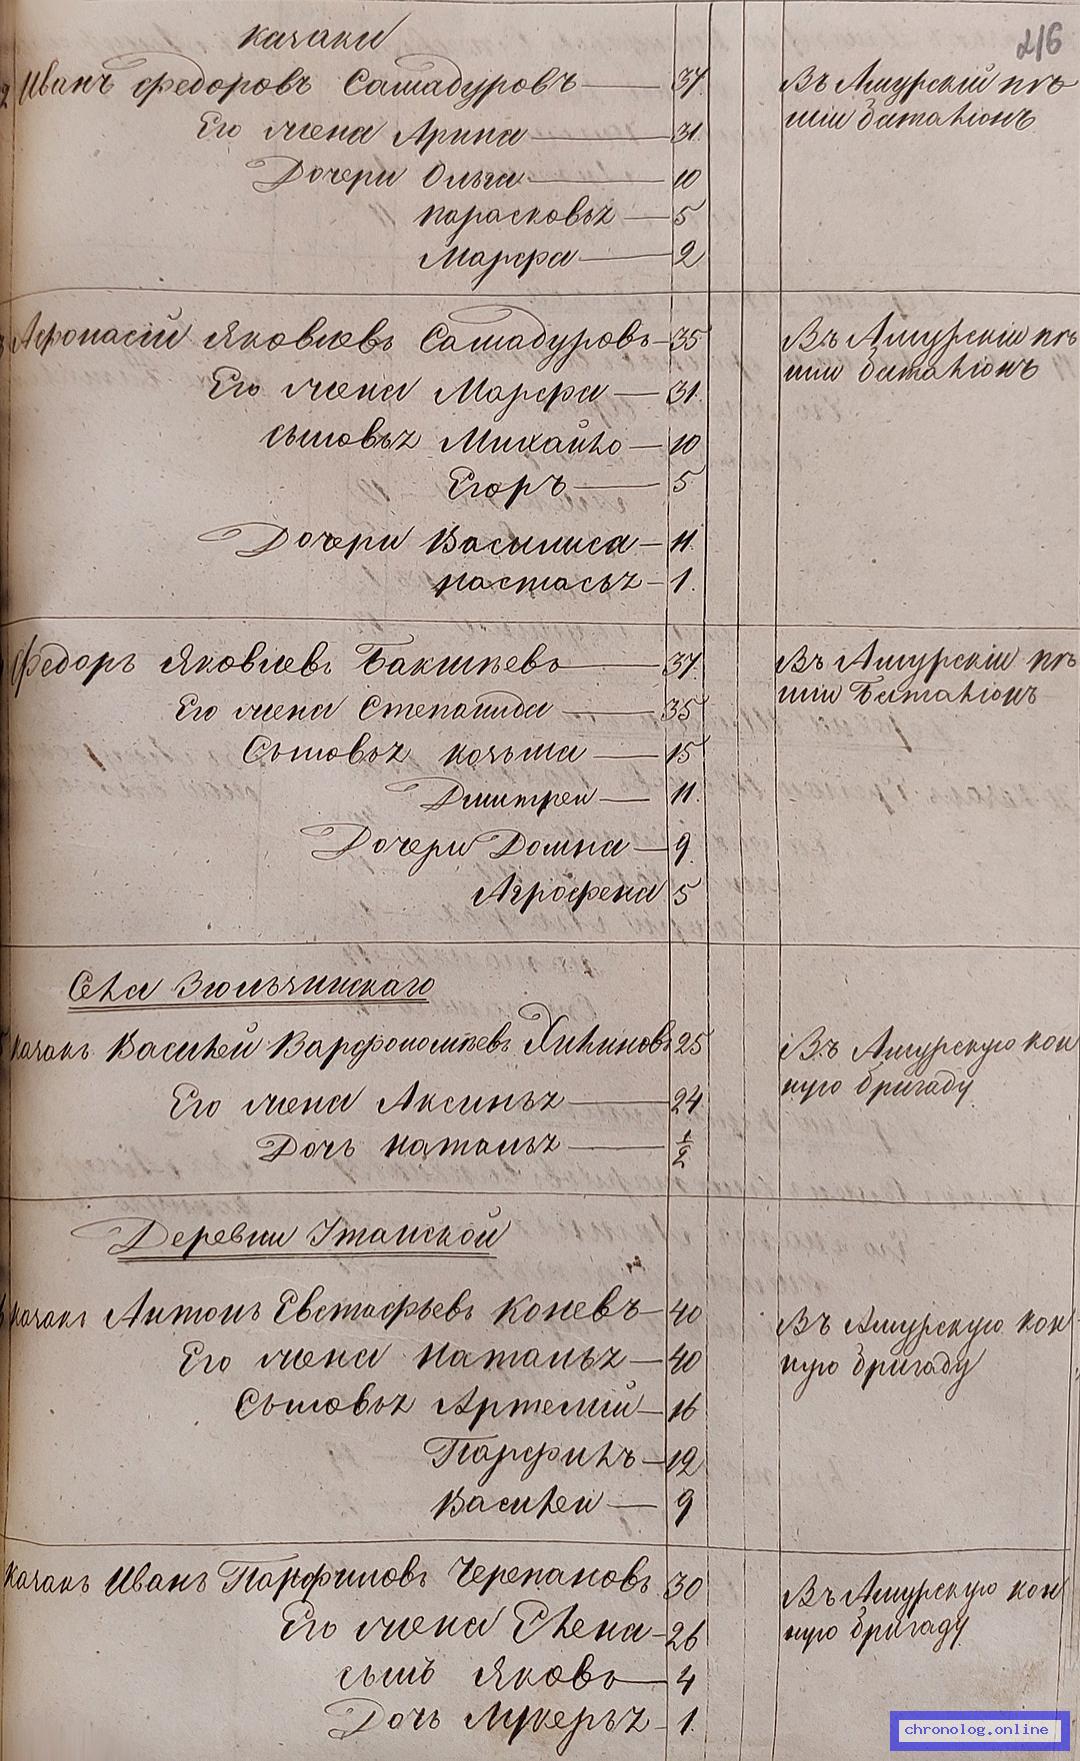 казаки
216
2 Иванъ Федоровъ Самадуровъ 37.
Въ Амурскій пѣ
шій баталіонъ
Его жена Арина 31.
Дочери Ольга 10
парасковья 5
Марфа 2
3 Афонасій Яковлевъ Самадуровъ 35
Въ Амурскій пѣ
шій баталіонъ
Его жена Марфа 31.
сыновья Михайло 10
Егоръ 5
Дочери Василиса 11.
настасья 1.
Федоръ Яковлевъ Бакшѣевъ 37.
Въ Амурскій пѣ
шій Баталіонъ
Его жена Степанида 35
Сыновья козьма 15
Дмитреи 11.
Дочери Домна 9.
Агрофена 5
Села Зюльзинскаго
казакъ Василеи Варфоломѣевъ Хилиновъ 25
Въ Амурскую кон
ную бригаду
Его жена Аксинья 24
Дочь наталья 1/2
Деревни Утанской
казакъ Антонъ Евстафьевъ коневъ 40
Въ Амурскую кон
ную бригаду
Его жена наталья 40
Сыновья Артемій 16
Парфилъ 12
Василеи 9
казакъ Иванъ Парфиловъ Черепановъ 30
Въ Амурскую кон
ную бригаду
Его жена Елена 26
сынъ Яковъ 4
Дочь Лукерья 1.
chronolog.online